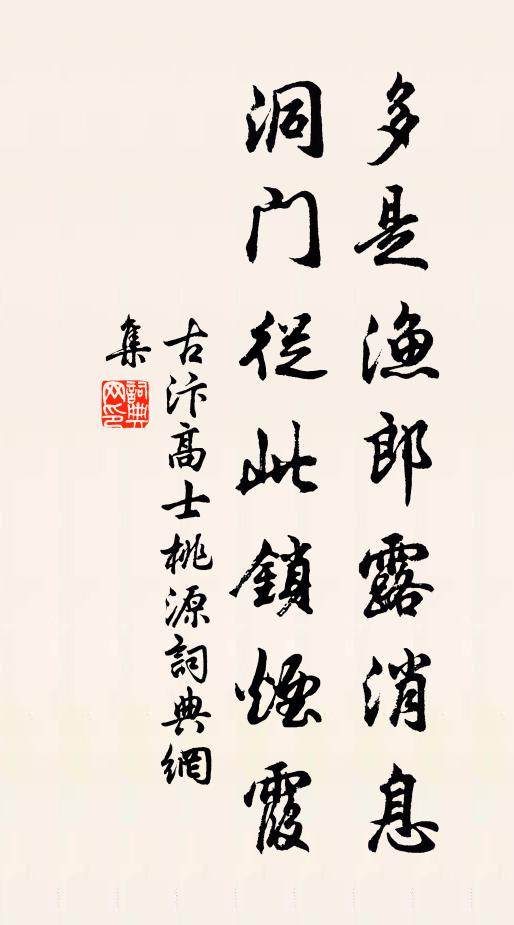 多是漁郎露消息
洞门從此鎖煙霞
古汴高士桃源詞典網
集
詞典网印